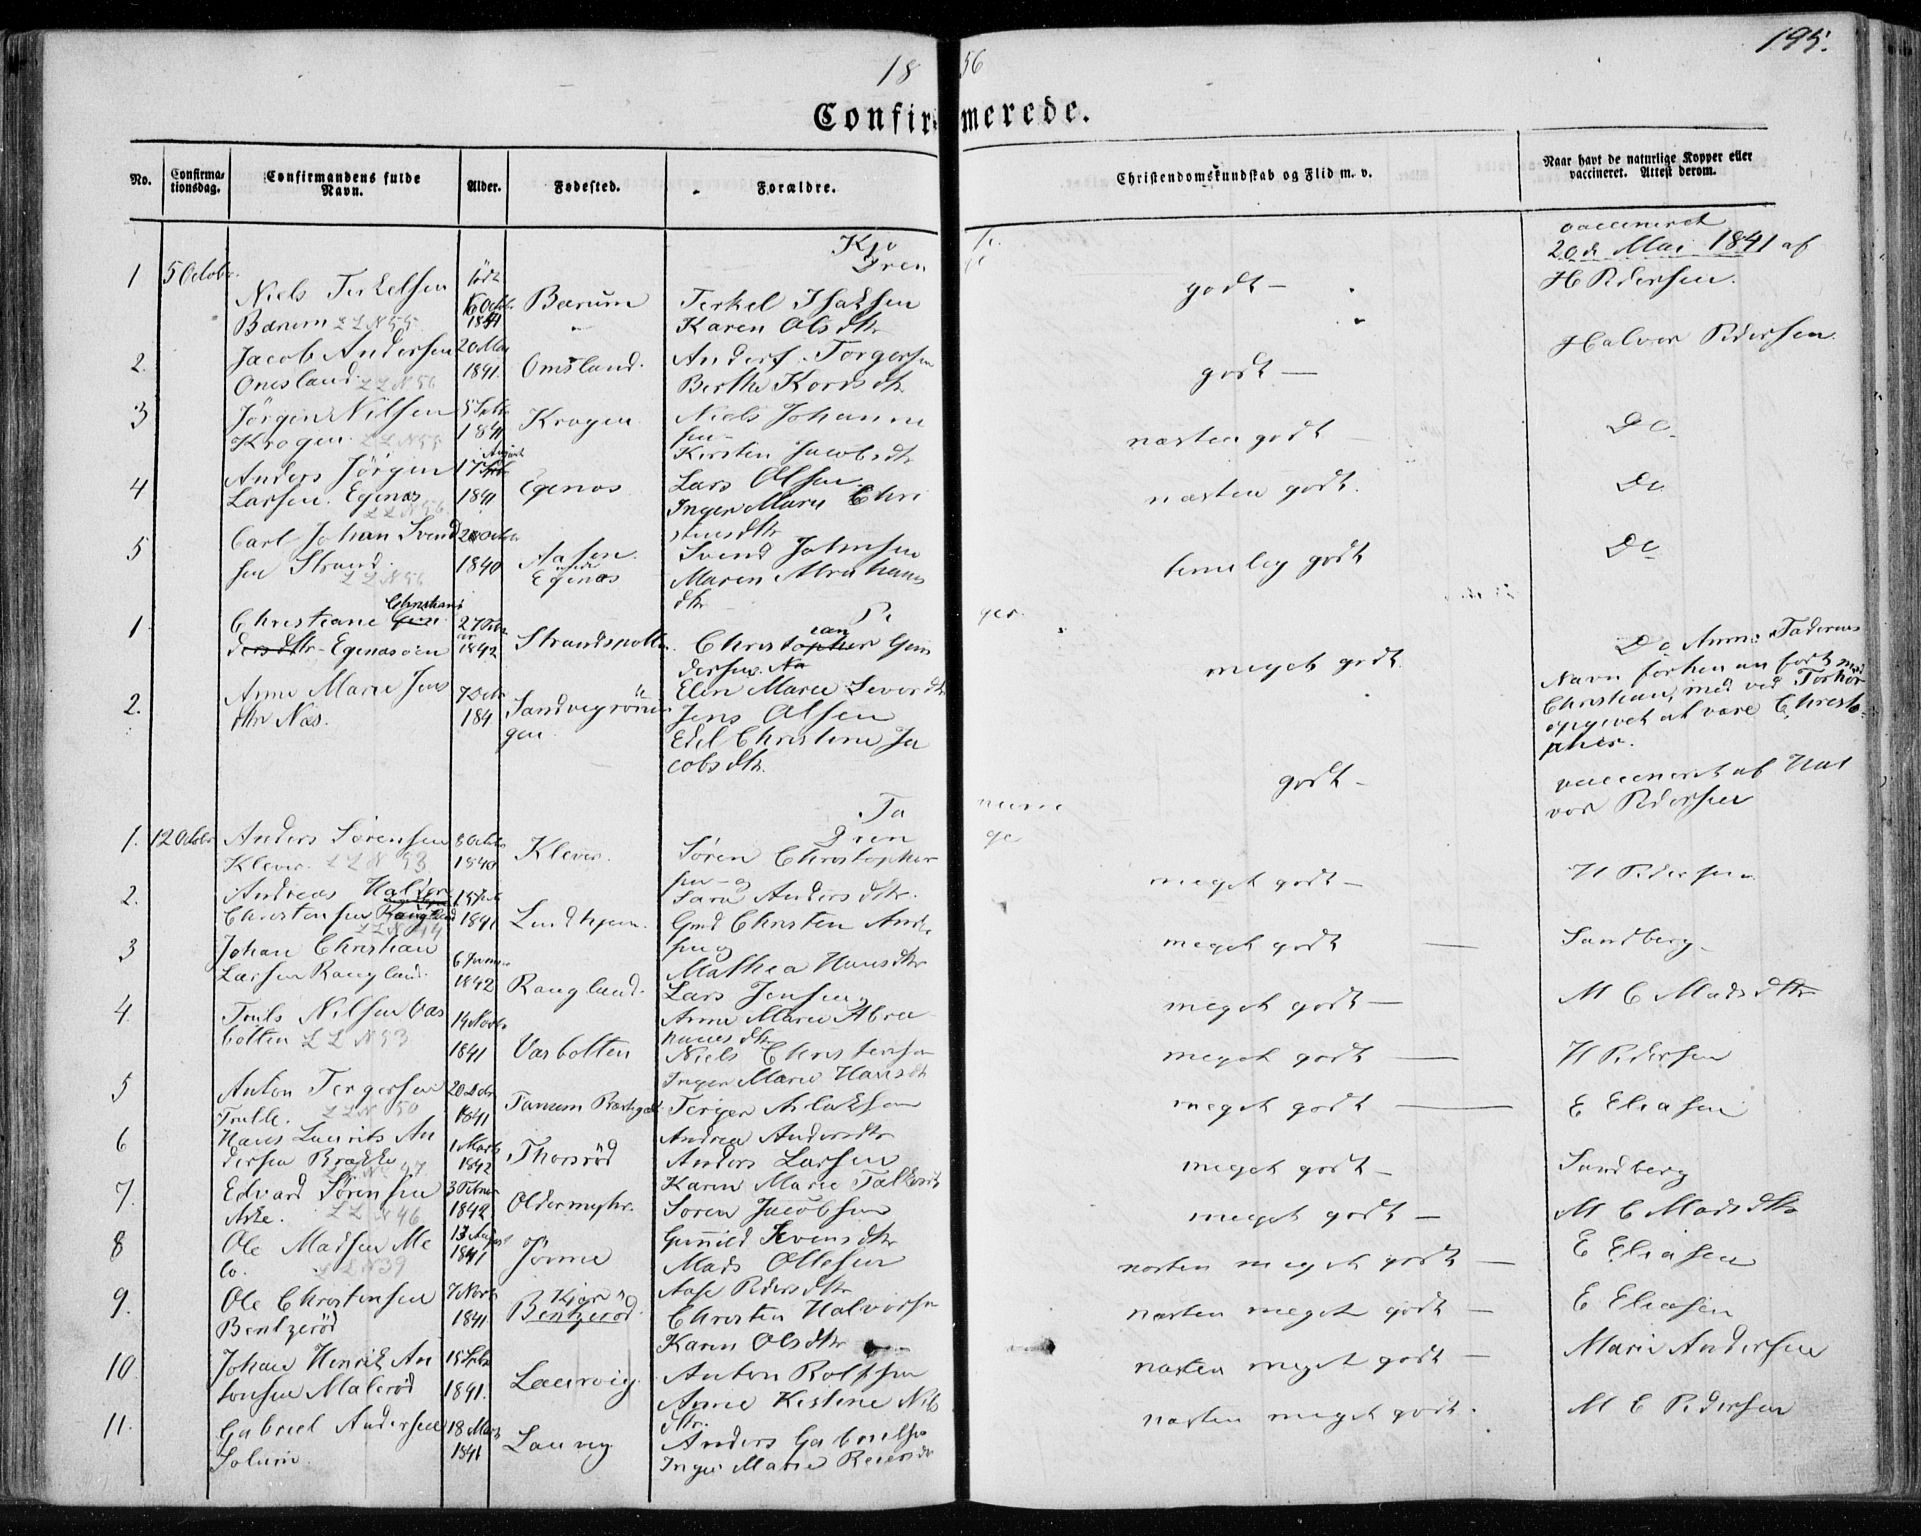 195.
18 56
Confirmerede.
No.
Confirma-
tionsdag.
Confirmandens fulde
Navn.
Alder.
Fødested.
Forældre.
Christendomskundskab og Flid m. v.
Naar havt de naturlige Kopper eller
vaccineret. Attest derom.
Dren ge
1 5 Octobr. Niels Terkelsen
Bærum L L N 55
født
16 Octbr
1841
Bærum
Terkel Isaksen
Karen Olsdtr
godt —
vaccineret
20de Mai 1841 af
H Pedersen.
2. Jacob Andersen
Omsland L L N 56
20 Mai
1841.
Omsland.
Anders Torgersen
Berthe Kordsdtr
godt —
Halvor Pedersen
3 Jörgen Nilsen
Krogen. L L N 55
5 Sptbr
1841
Krogen
Niels Johanne
sen
Kirsten Jacobsdtr
næsten godt —
Do.
4 Anders Jörgen
Larsen. Egenæs
L L N 56
17 August
1841
Egenæs
Lars Olsen
Inger Marie Chri
stensdtr
næsten godt.
Do
5 Carl Johan Svend
sen Strand.
L L N 56
28 Octbr
1840
Aasen
under
Egenæs
Svend Johnsen
Maren Abrahams
dtr
temelig godt
Do
Pi ger.
1. Christiane Christians
dersdtr Egenæsöen
27 Febr
1842
Strandspotten
Christopher Gun
ian
dersen.
Elen Marie Siversdtr
meget godt.
Do Anm: Faderens
Navn forhen anfört med
Christian, med ved Forhör
opgivet at være Christo-
pher.
2. Anne Marie Jens
dtr Næs.
7 Dcbr
184
Sandvigrönin
gen
Jens Olsen
Edel Christine Ja
cobsdtr.
godt —
vaccineret af Hal
vor Pedersen
Ta num
Dren ge
1. 12 Octobr Anders Sörensen
Klever. L L N 53
8 Octbr
1840
Klever.
Sören Christopher
sen og
Sara Andersdtr.
meget godt —
H Pedersen
2. Andreas Halvor
Christensen
L L N 44
15 Juli
1841
Lindhjem
Christen And
sen og
Mathea Hansdtr
meget godt —
Sandberg
3 Johan Christian
Larsen Rangland.
6 Januar
1842
Rangland.
Lars Jensen
Anne Marie Abra
hamsdtr
meget godt —
M C Madsdtr
4. Truls Nilsen Vas
botten L L N 53
14 Novbr
1841
Vasbotten
Niels Christensen
Inger Marie Hansdtr
meget godt —
H Pedersen
5 Anton Tergersen
L L N 50
20 Dcbr
1841
Tanum Præstgaard
Terger Aslaksen
Andrea Andersdtr
meget godt —
E Eliasen
6 Hans Laurits An
dersen Brække
L L N 47
1 Marts
1842
Thorsröd
Anders Larsen
Karen Marie Falkersdtr
meget godt —
Sandberg
7. Edvard Sörensen
Aske. L L N 46
3 Februar
1842
Oldermyhr.
Sören Jacobsen
Gunild Svensdtr
meget godt —
M C Madsdtr
8 Ole Madsen Me
lö. L L N 39
13 August
1841
Jönne
Mads Ollesen
Aase Pedersdtr
næsten meget godt —
E Eliasen
9. Ole Christensen
Bentzeröd
7 Novbr
1841
Bentzeröd.
Christen Halvorsen
Karen Olsdtr
næsten meget godt —
E Eliasen
10 Johan Henrik An
tonsen Maleröd
15 Sptbr
1841.
Laurvig.
Anton Rolfsen
Anne Kistine Nils
dtr.
næsten meget godt —
Marie Andersen
11. Gabriel Andersen
Solum.
18 Marts
1841
Laurvig
Anders Gabrielsen
Inger Marie Reiersdtr
næsten meget godt.
M C Pedersen